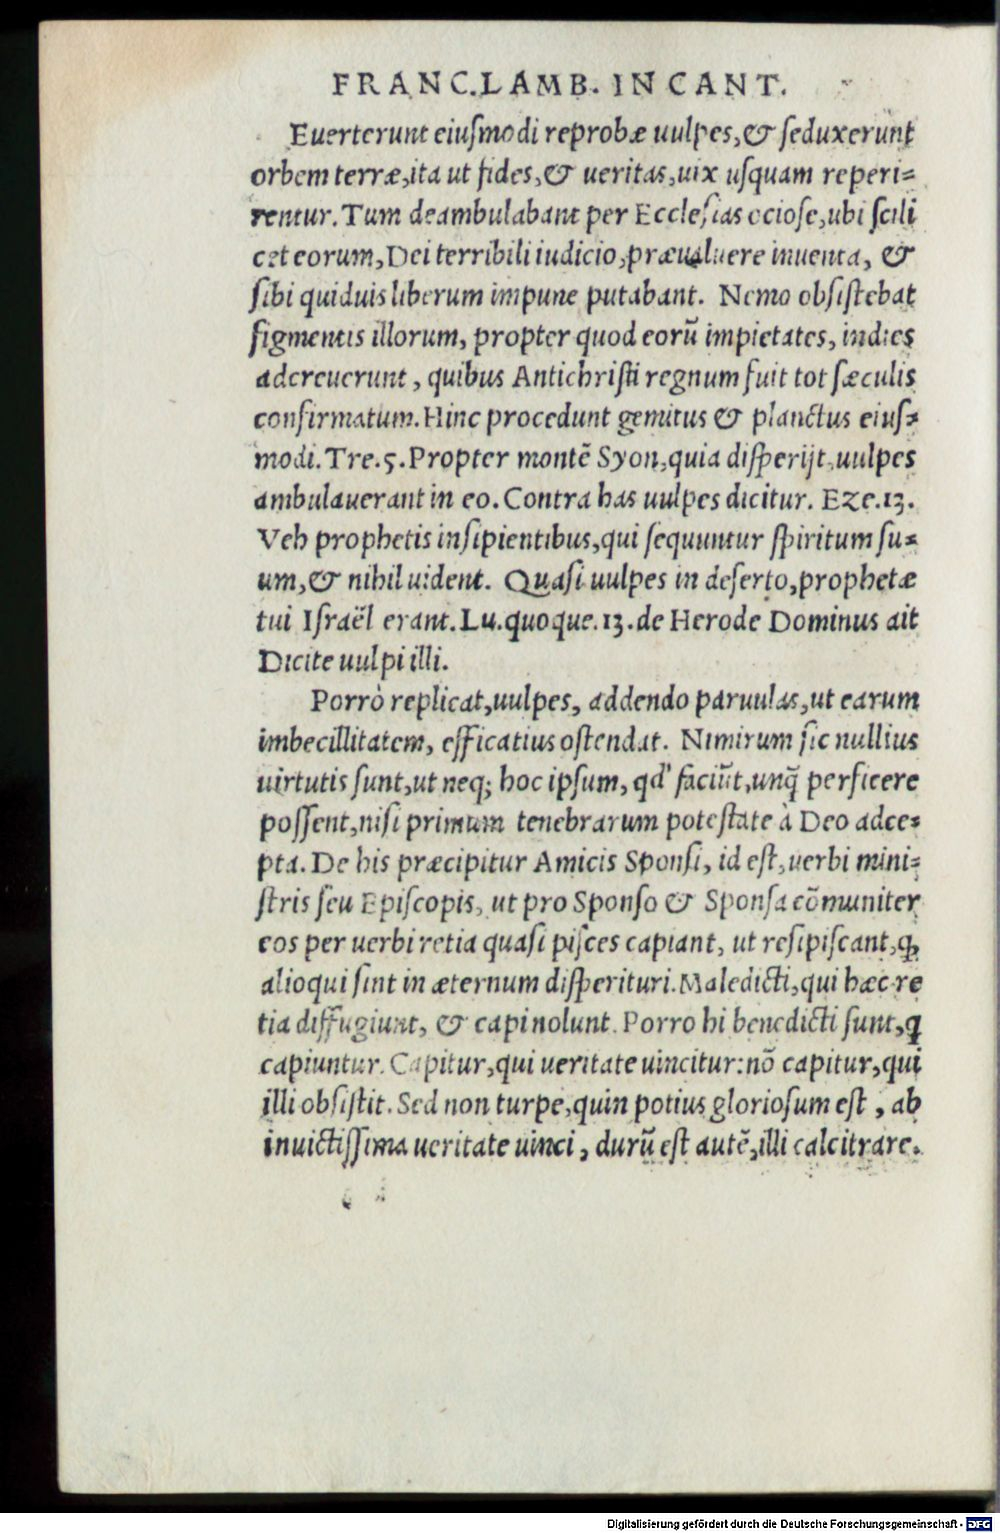 FRANC. LAMB. IN CANT.
Euerterunt eiuſmodi reprobæ uulpes, & ſeduxerunt
orbem terræ, ita ut fides, & ueritas, uix uſquam reperi=
rentur. Tum deambulabant per Eccleſias ocioſe, ubi ſcili
cet eorum, Dei terribili iudicio, præualuere inuenta, &
ſibi quiduis liberum impune putabant. Nemo obſiſtebat
figmentis illorum, propter quod eorũ impietates, indies
adcreuerunt, quibus Antichriſti regnum fuit tot ſæculis
confirmatum. Hinc procedunt gemitus & planctus eiuſ=
modi. Tre. 5. Propter montẽ Syon, quia diſperijt, uulpes
ambulauerant in eo. Contra has uulpes dicitur. Eze. 13.
Veh prophetis inſipientibus, qui ſequuntur ſpiritum ſu=
um, & nihil uident. Quaſi uulpes in deſerto, prophetæ
tui Iſraël erant. Lu. quoque. 13. de Herode Dominus ait
Dicite uulpi illi.
Porrò replicat, uulpes, addendo paruulas, ut earum
imbecillitatem, efficatius oſtendat. Nimirum ſic nullius
uirtutis ſunt, ut neq; hoc ipſum, qd' faciũt, unq̃ perficere
poſſent, niſi primum tenebrarum poteſtate à Deo adce=
pta. De his præcipitur Amicis Sponſi, id eſt, uerbi mini=
ſtris ſeu Epiſcopis, ut pro Sponſo & Sponſa cõmuniter
eos per uerbi retia quaſi piſces capiant, ut reſipiſcant, ꝙ
alioqui ſint in æternum diſperituri. Maledicti, qui hæc re
tia diffugiunt, & capi nolunt. Porro hi benedicti ſunt, ꝗ
capiuntur. Capitur, qui ueritate uincitur: nõ capitur, qui
illi obſiſtit. Sed non turpe, quin potius glorioſum eſt, ab
inuictiſſima ueritate uinci, durũ eſt autẽ, illi calcitrare.
Digitalisierung gefördert durch die Deutsche Forschungsgemeinschaft - DFG